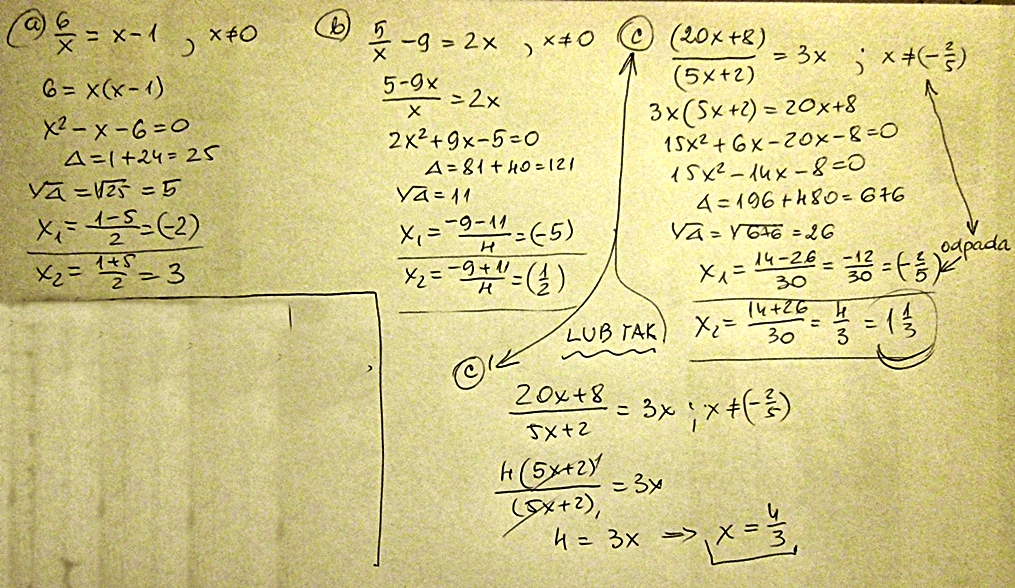 a) 6/x = x-1 , x≠0
6 = x(x-1)
x² - x - 6 = 0
Δ = 1+24 = 25
√Δ = √25 = 5
x₁ = (1-5)/2 = (-2)
x₂ = (1+5)/2 = 3
b) 5/x - 9 = 2x , x≠0
(5-9x)/x = 2x
2x² + 9x - 5 = 0
Δ = 81 + 40 = 121
√Δ = 11
x₁ = (-9-11)/4 = (-5)
x₂ = (-9+11)/4 = (1/2)
c) (20x+8)/(5x+2) = 3x ; x≠(-2/5)
3x(5x+2) = 20x+8
15x² + 6x - 20x - 8 = 0
15x² - 14x - 8 = 0
Δ = 196 + 480 = 676
√Δ = √676 = 26
x₁ = (14-26)/30 = -12/30 = (-2/5) odpada
x₂ = (14+26)/30 = 4/3 = 1 1/3
LUB TAK
c)' (20x+8)/(5x+2) = 3x ; x≠(-2/5)
4(5x+2)¹/(5x+2)₁ = 3x
4 = 3x => x = 4/3